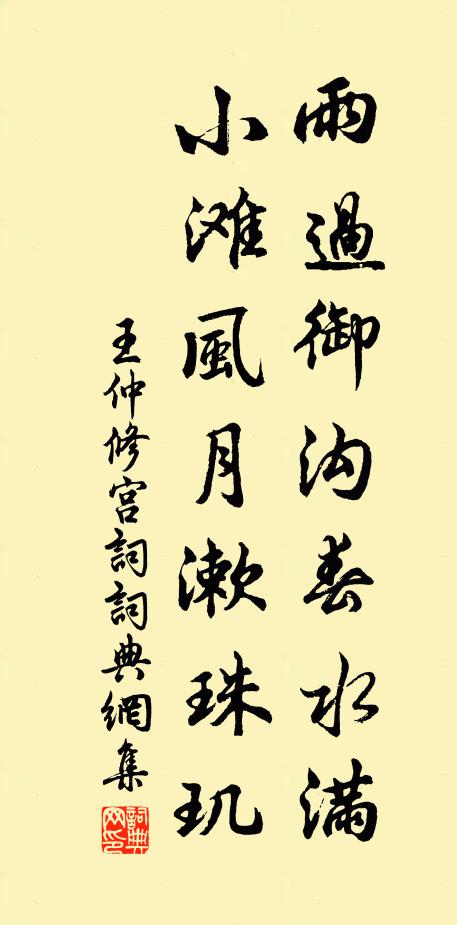 雨過御沟春水滿
小滩風月漱珠玑
王仲修宫詞詞典網集
詞典
网印